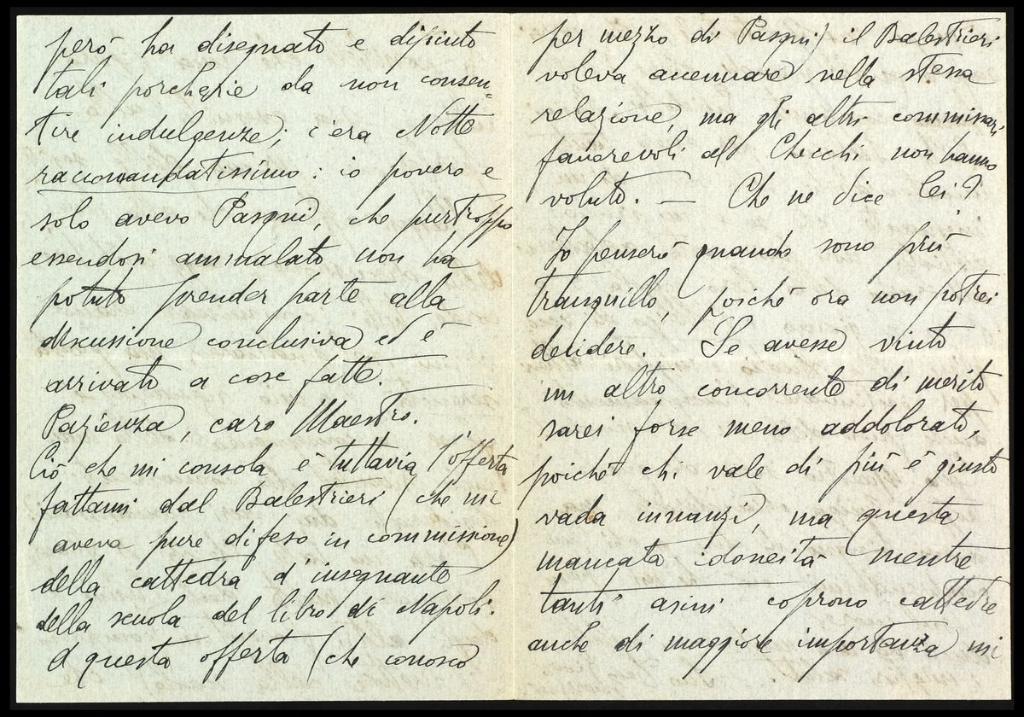 però ha disegnato e dipinto
tali porcherie da non consen=
tire indulgenze; c'era Notte
raccomandatissimo: io povero e
solo avevo Pasqui, che purtroppo
essendosi ammalato non ha
potuto prender parte alla
discussione conclusiva ed è
arrivato a cose fatte. —
Pazienza, caro Maestro.
Ciò che mi consola è tuttavia l'offerta
fattami dal Balestrieri (che mi
aveva pure difeso in commissione)
della cattedra d'insegnante
della scuola del libro di Napoli.
A questa offerta (che conosco
per mezzo di Pasqui) il Balestrieri
voleva accennare nella stessa
relazione, ma gli altri commissari
favorevoli al Checchi non hanno
voluto. — Che ne dice lei?
Io penserò quando sono più
tranquillo, poiché ora non potrei
decidere. Se avesse vinto
un altro concorrente di merito
sarei forse meno addolorato,
poiché chi vale di più è giusto
vada innanzi, ma questa
mancata idoneità mentre
tanti asini coprono cattedre
anche di maggiore importanza mi